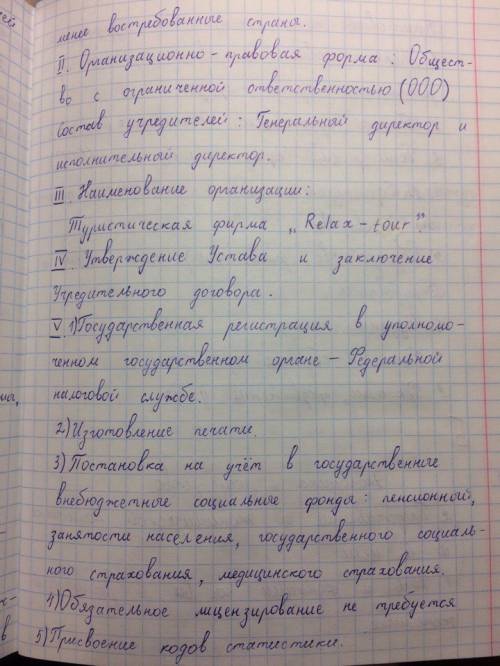 менее востребованные страны.
II. Организационно-правовая форма: Общест-
во с ограниченной ответственностью (ООО)
Состав учредителей: Генеральный директор и
исполнительный директор.
III Наименование организации:
Туристическая фирма „Relax-tour".
IV. Утверждение Устава и заключение
Учредительного договора.
V. 1) Государственная регистрация в уполномо-
ченном государственном органе – Федеральной
налоговой службе.
2) Изготовление печати.
3) Постановка на учёт в государственные
внебюджетные социальные фонды: пенсионный,
занятости населения, государственного социаль-
ного страхования, медицинского страхования.
4) Обязательное лицензирование не требуется
5) Присвоение кодов статистики.